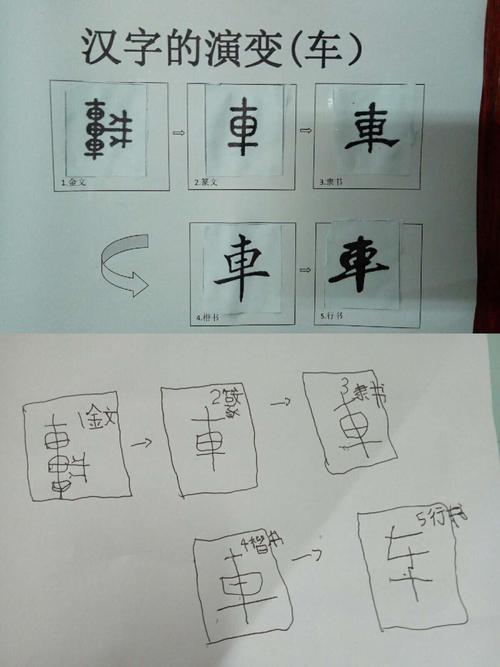 汉字的演变(车)
車 車
1.金文 2.篆文 3.隶书
車 車
4.楷书 5.行书
1金文 2篆 3隶书
車 車
4楷书 5行书
車 车